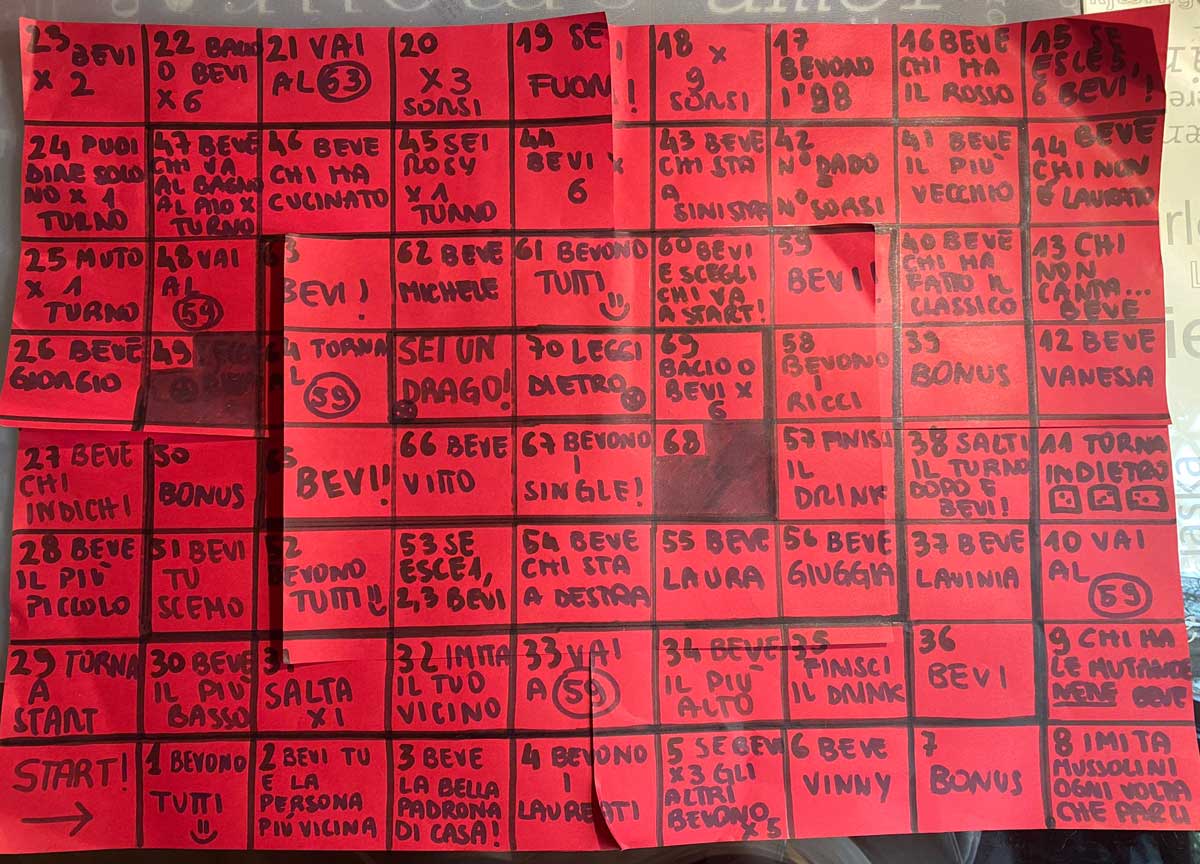 23 BEVI
x 2
22 BACIO
O BEVI
x 6
21 VAI
AL 63
20
x3
SORSI
19 SEI
FUORI!
18 x
9
SORSI
17
BEVONO
I '98
16 BEVE
CHI HA
IL ROSSO
15 SE
ESCE 5,
6 BEVI!
24 PUOI
DIRE SOLO
NO x 1
TURNO
47 BEVE
CHI VA
AL BAGNO
AL PIO x
TURNO
46 BEVE
CHI HA
CUCINATO
45 SEI
ROSY
x 1
TURNO
44
BEVI x
6
43 BEVE
CHI STA
A
SINISTRA
42
N° DADO
=
N° SORSI
41 BEVE
IL PIÙ
VECCHIO
14 BEVE
CHI NON
È LAUREATO
25 MUTO
x 1
TURNO
48 VAI
AL
59
63
BEVI!
62 BEVE
MICHELE
61 BEVONO
TUTTI
60 BEVI
E SCEGLI
CHI VA
A START!
59
BEVI!
40 BEVE
CHI HA
FATTO IL
CLASSICO
13 CHI
NON
CANTA...
BEVE
26 BEVE
GIORGIO
49
64 TORNA
AL
59
SEI UN
DRAGO!
70 LEGGI
DIETRO
69
BACIO O
BEVI x
6
58
BEVONO
I
RICCI
39
BONUS
12 BEVE
VANESSA
27 BEVE
CHI
INDICHI
50
BONUS
65
BEVI!
66 BEVE
VITO
67 BEVONO
I
SINGLE!
68
57 FINISCI
IL
DRINK
38 SALTI
IL TURNO
DOPO E
BEVI!
11 TORNA
INDIETRO
28 BEVE
IL PIÙ
PICCOLO
51 BEVI
TU
SCEMO
52
BEVONO
TUTTI
53 SE
ESCE 1,
2,3 BEVI
54 BEVE
CHI STA
A DESTRA
55 BEVE
LAURA
56 BEVE
GIUGGIA
37 BEVE
LAVINIA
10 VAI
AL
59
29 TORNA
A
START
30 BEVE
IL PIÙ
BASSO
31
SALTA
x1
32 IMITA
IL TUO
VICINO
33 VAI
A 59
34 BEVE
IL PIÙ
ALTO
35
FINISCI
IL DRINK
36
BEVI
9 CHI HA
LE MUTANDE
NERE BEVE
START!
1 BEVONO
TUTTI
2 BEVI TU
E LA
PERSONA
PIÙ VICINA
3 BEVE
LA BELLA
PADRONA
DI CASA!
4 BEVONO
I
LAUREATI
5 SE BEVI
x3 GLI
ALTRI
BEVONO
x5
6 BEVE
VINNY
7
BONUS
8 IMITA
MUSSOLINI
OGNI VOLTA
CHE PARLI